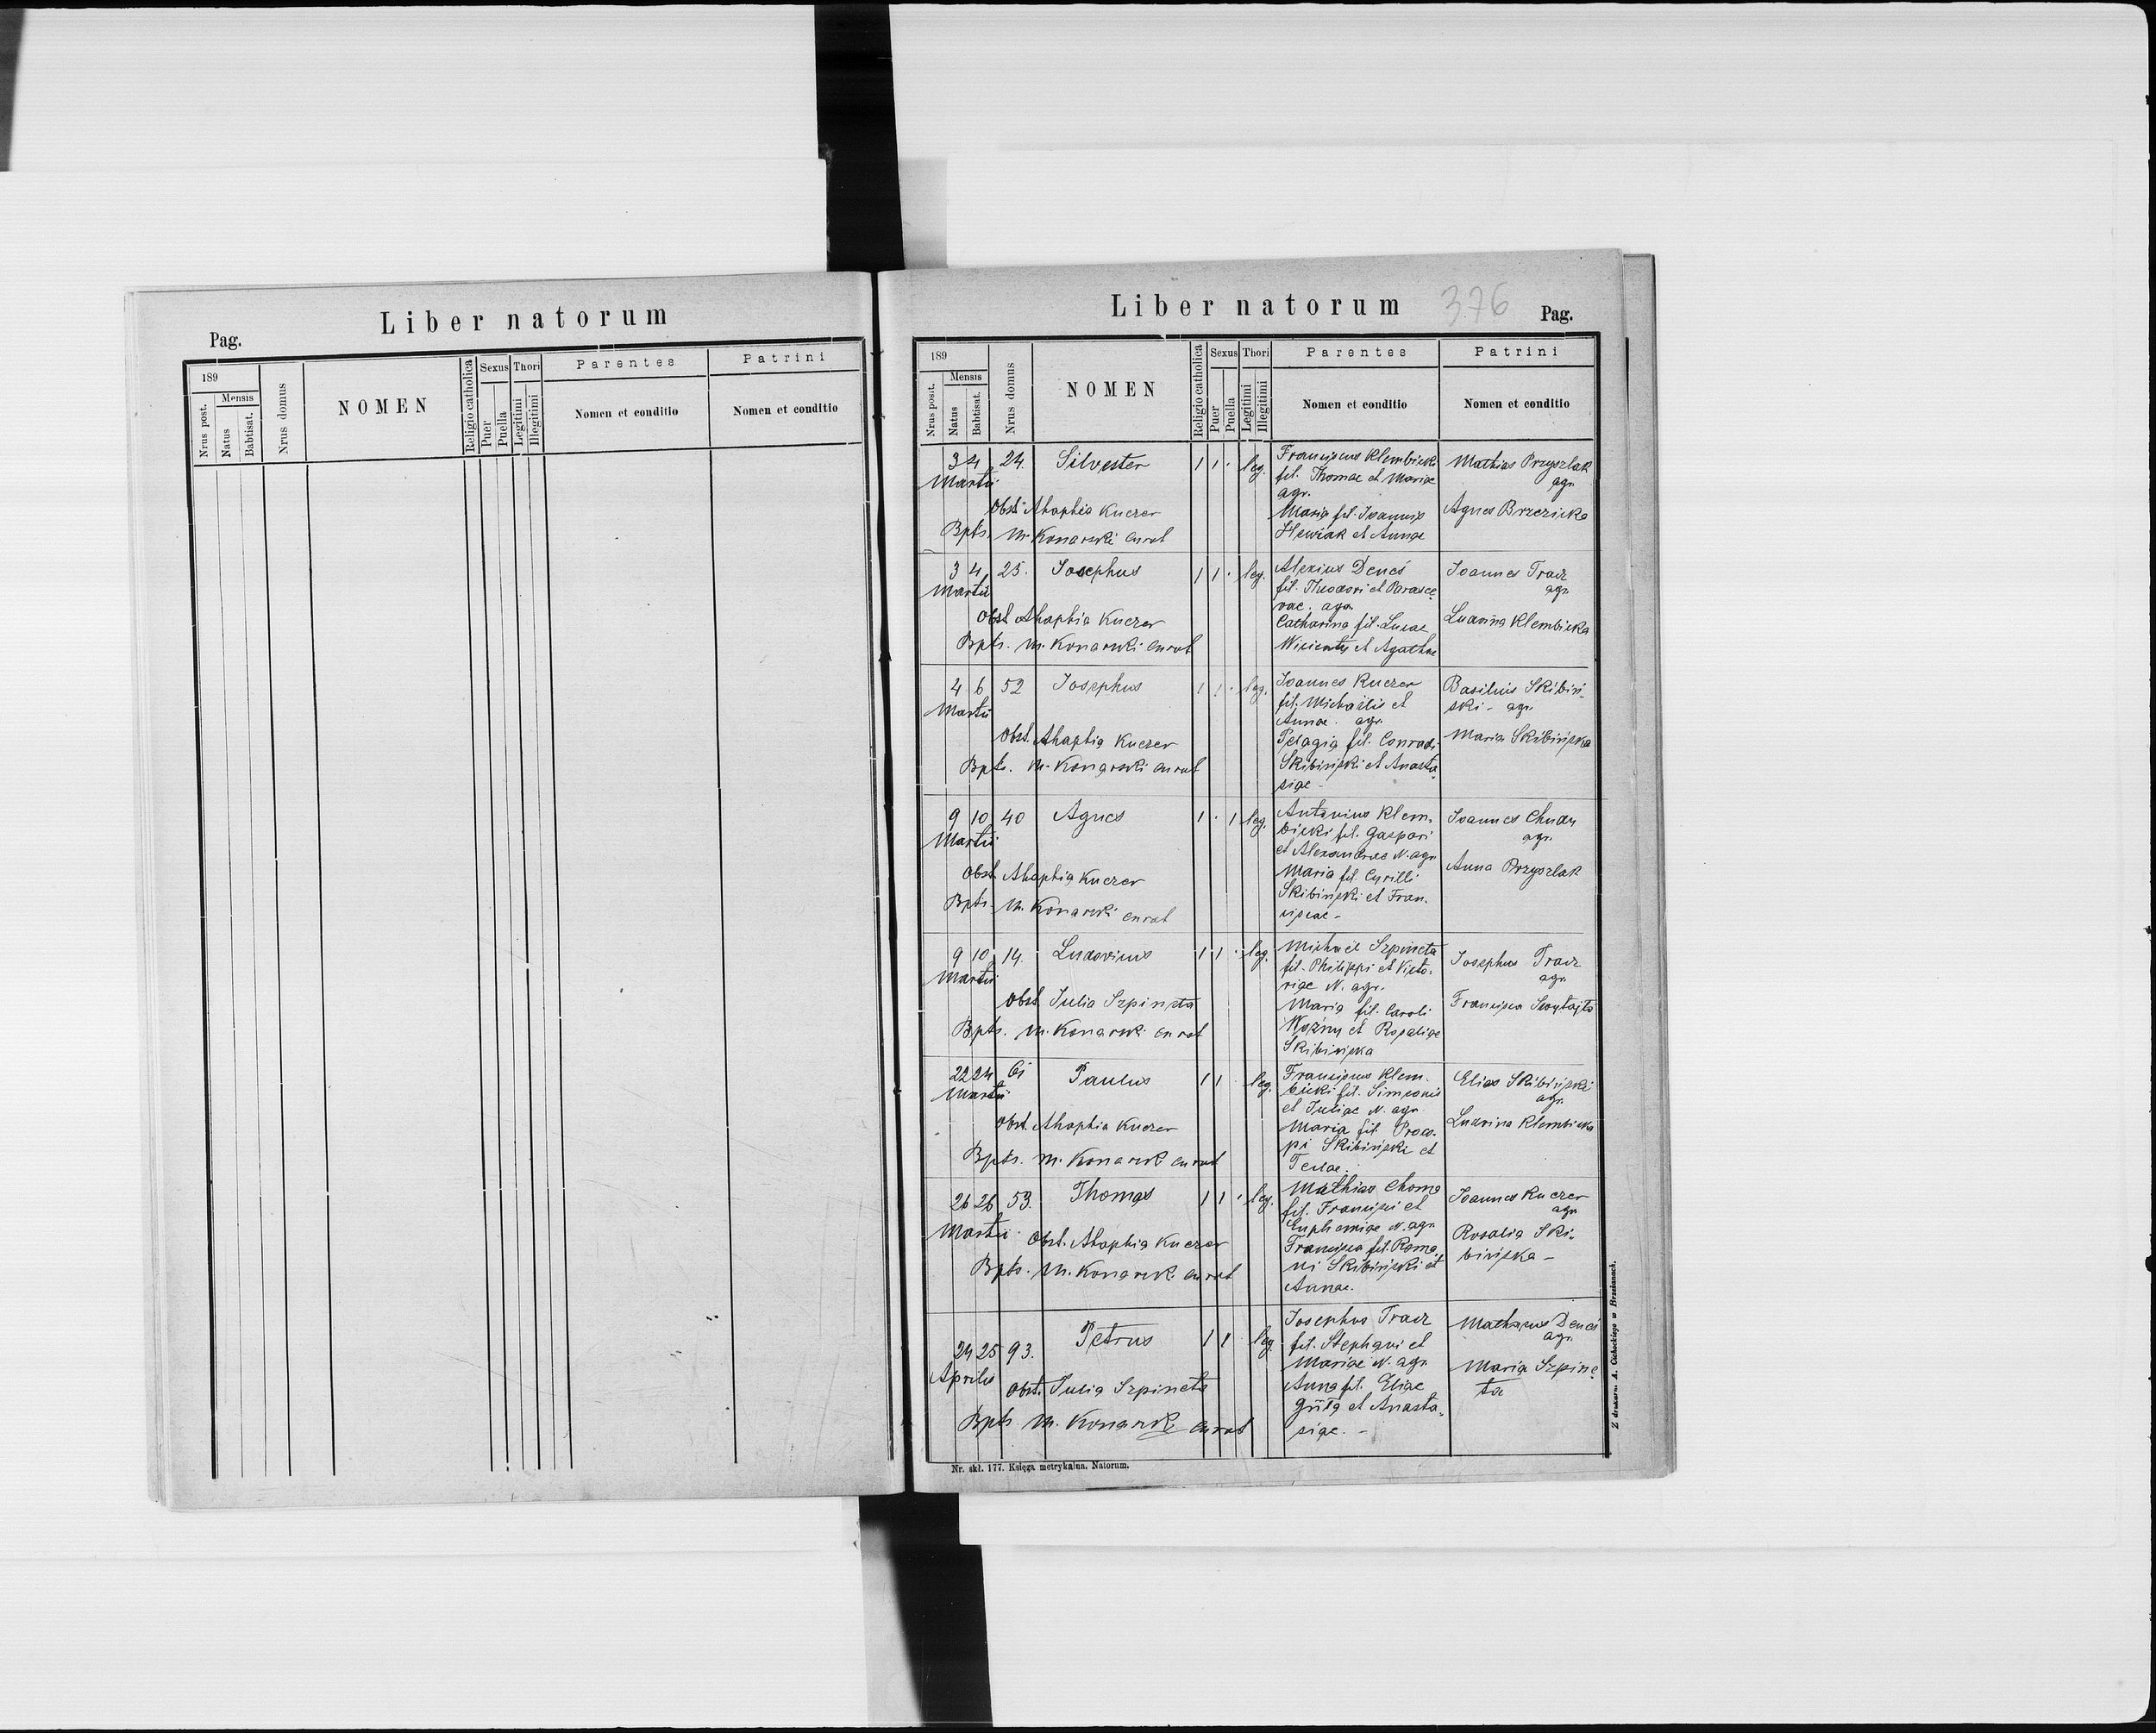 Liber natorum
Pag.
189
Mensis
Nrus post.
Natus
Babtisat.
Nrus domus
NOMEN
Religio catholica
Sexus
Puer
Puella
Thori
Legitimi
Illegitimi
Parentes
Nomen et conditio
Patrini
Nomen et conditio
Liber natorum 376 Pag.
189
Mensis
Nrus post.
Natus
Babtisat.
Nrus domus
NOMEN
Religio catholica
Sexus
Puer
Puella
Thori
Legitimi
Illegitimi
Parentes
Nomen et conditio
Patrini
Nomen et conditio
3 4 24. Silvester 1 1 · leg.
Martii
Obst. Ahaphia Kuczer
Bpts. M. Konarski curat
Franciscus Klembicki
fil. Thomae et Mariae
agr.
Maria fil. Joannis
et Annae
Mathias Przyszlak
agr.
Agnes Brzezicka
3 4 25. Josephus 1 1 · leg.
Martii
Obst. Ahaphia Kuczer
Bpts. M. Konarski curat
Alexius Deneś
fil. Theodori et Parasce
vae. agr.
Catharina fil. Lucae
et Agathae
Joannes Tracz
agr.
Ludvina Klembicka
4 6 52 Josephus 1 1 · leg.
Martii
Obst. Ahaphia Kuczer
Bpts. M. Konarski curat
Joannes Kuczer
fil. Michaëlis et
Annae. agr.
Pelagia fil. Conradi
Skibiński et Anasta
siae -
Basilius Skibiń-
ski - agr.
Maria Skibińska
9 10 40 Agnes 1 · 1 leg.
Martii
Obst. Ahaphia Kuczer
Bpts. M. Konarski curat
Antonius Klem-
bicki fil. Gaspari
et Alexandrae N. agr.
Maria fil. Cyrilli
Skibiński et Fran-
ciscae -
Joannes Chudy
agr.
Anna Przyszlak
9 10 14. Ludovicus 1 1 · leg.
Martii
Obst. Julia Szpineta
Bpts. M. Konarski curat
Michaël Szpineta
fil. Philippi et Victo-
riae N. agr.
Maria fil. Caroli
Woźny et Rosaliae
Skibińska
Josephus Tracz
agr.
Francisca
22 24 61 Paulus 1 1 · leg.
Martii
Obst. Ahaphia Kuczer
Bpts. M. Konarski curat
Franciscus Klem-
bicki fil. Simeonis
et Juliae N. agr.
Maria fil. Proco-
pi Skibiński et
Teclae.
Elias Skibiński
agr.
Ludvina Klembicka
26 26 53. Thomas 1 1 · leg.
Martii
Obst. Ahaphia Kuczer
Bpts. M. Konarski curat
Mathias Choma
fil. Francisci et
Euphemiae N. agr.
Francisca fil. Roma
ni Skibiński et
Annae.
Joannes Kuczer
agr.
Rosalia Ski-
bińska -
24 25 93. Petrus 1 1 leg.
Aprilis
Obst. Julia Szpineta
Bpts. M. Konarski curat
Josephus Tracz
fil. Stephani et
Mariae N. agr.
Anna fil. Eliae
et Anasta-
siae. -
Deneś
agr.
Maria Szpine
ta
Nr. skł. 177. Księga metrykalna. Natorum.
Z drukarni A. Cichockiego w Brzeżanach.